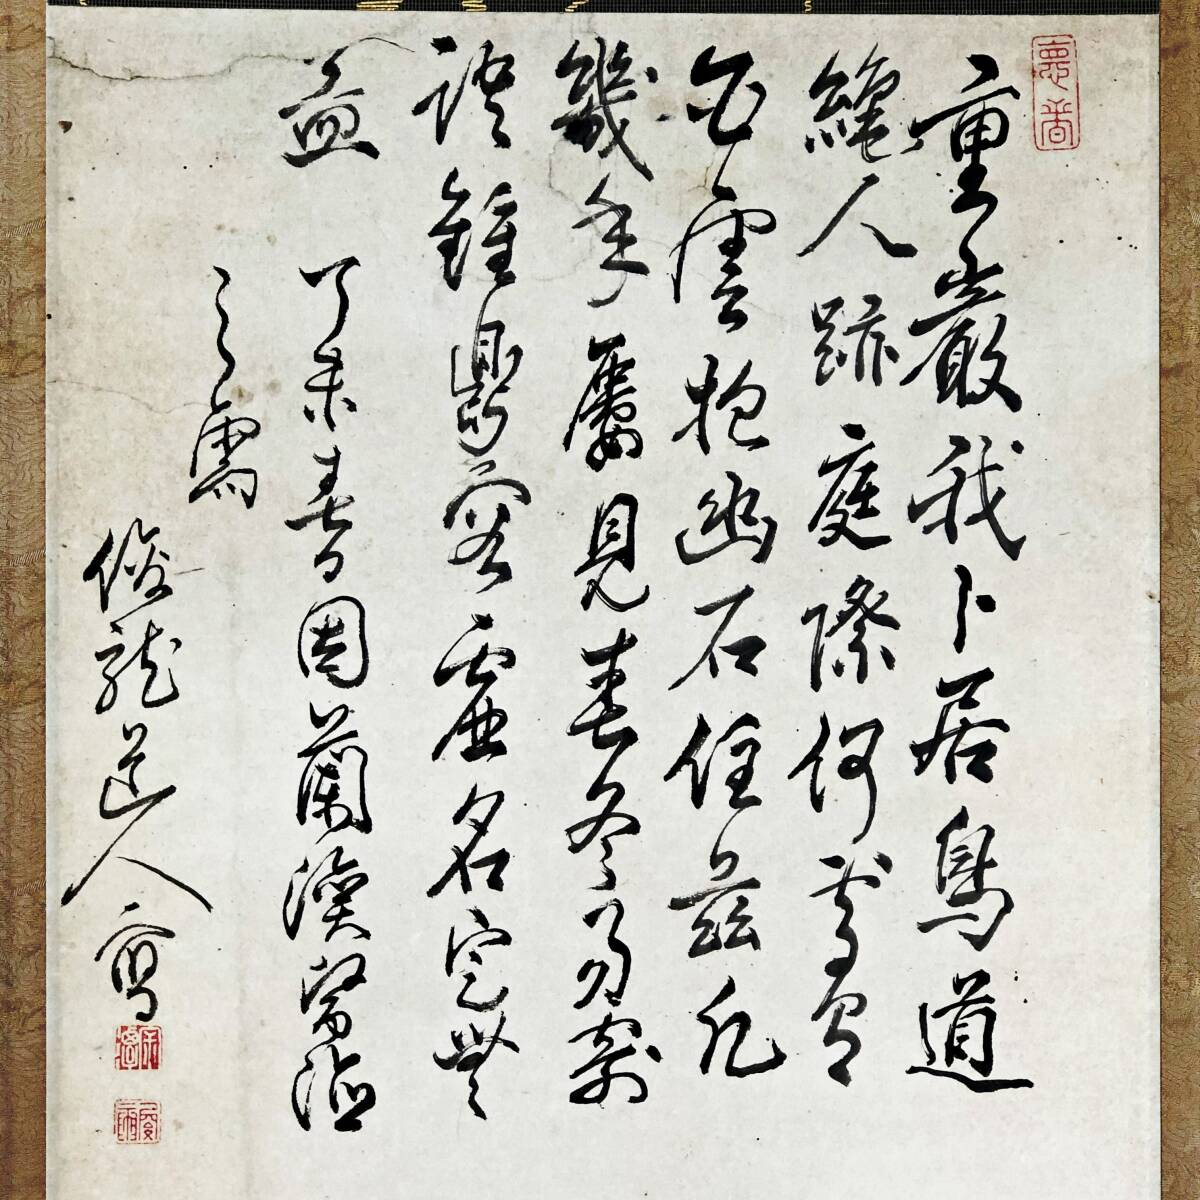 重巖我卜居鳥道
絶人跡庭際何所有
白雲抱幽石住茲凡
幾年屢見春冬易寄
語鐘鼎家虛名定無
益 丁未春日因蘭
之需
俊龍道人寫